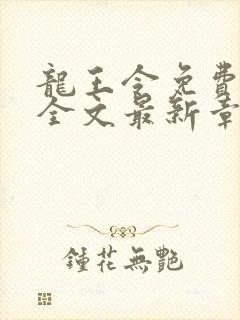 龍王令免費
全文最新章
鍾花無艷